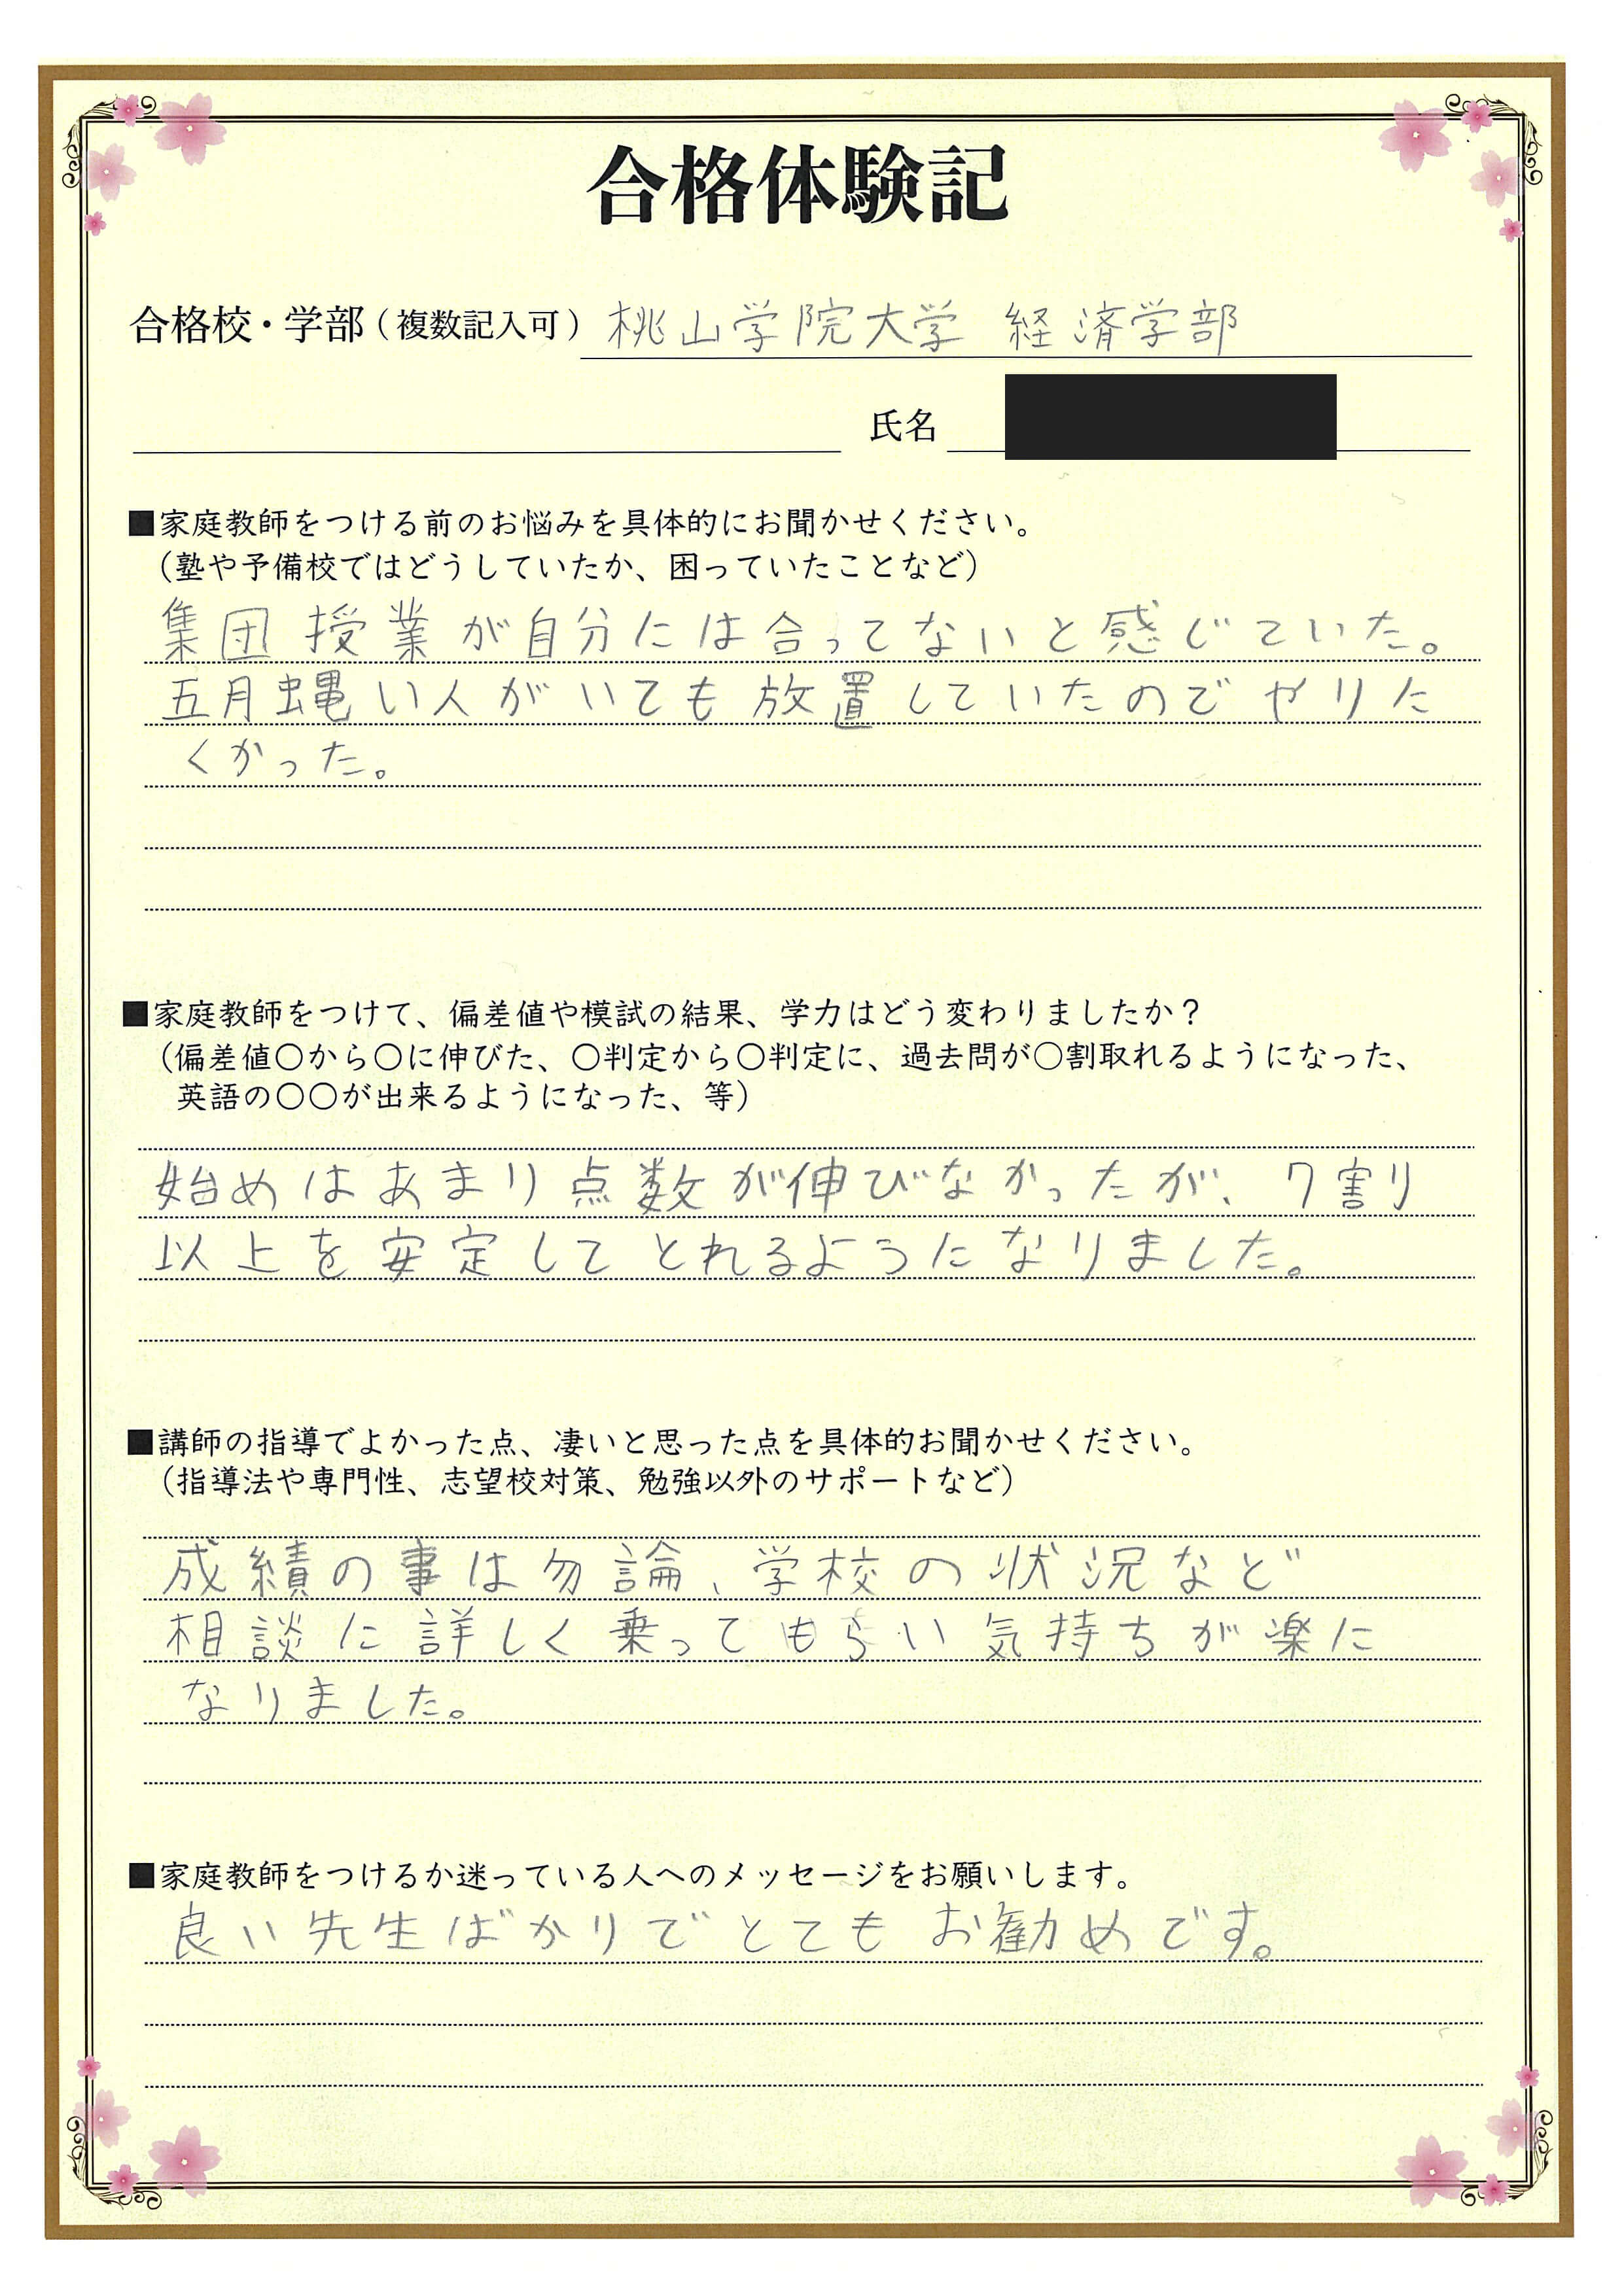 合格体験記
合格校・学部（複数記入可） 桃山学院大学 経済学部
氏名
■家庭教師をつける前のお悩みを具体的にお聞かせください。
（塾や予備校ではどうしていたか、困っていたことなど）
集団授業が自分には合ってないと感じていた。
五月蝿い人がいても放置していたのでやりた
くかった。
■家庭教師をつけて、偏差値や模試の結果、学力はどう変わりましたか？
（偏差値〇から〇に伸びた、〇判定から〇判定に、過去問が〇割取れるようになった、
英語の〇〇が出来るようになった、等）
始めはあまり点数が伸びなかったが、7割り
以上を安定してとれるようになりました。
■講師の指導でよかった点、凄いと思った点を具体的お聞かせください。
（指導法や専門性、志望校対策、勉強以外のサポートなど）
成績の事は勿論、学校の状況など
相談に詳しく乗ってもらい気持ちが楽に
なりました。
■家庭教師をつけるか迷っている人へのメッセージをお願いします。
良い先生ばかりでとてもお勧めです。